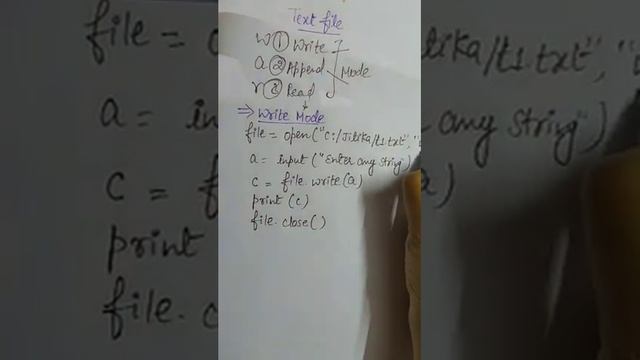 Text file
W ① Write
a ② Append
Mode
r ③ Read
⇒ Write Mode
file = open("C:/Jitika/t1.txt", "
a = input ("Enter any string")
c = file.write(a)
print (c)
file.close()